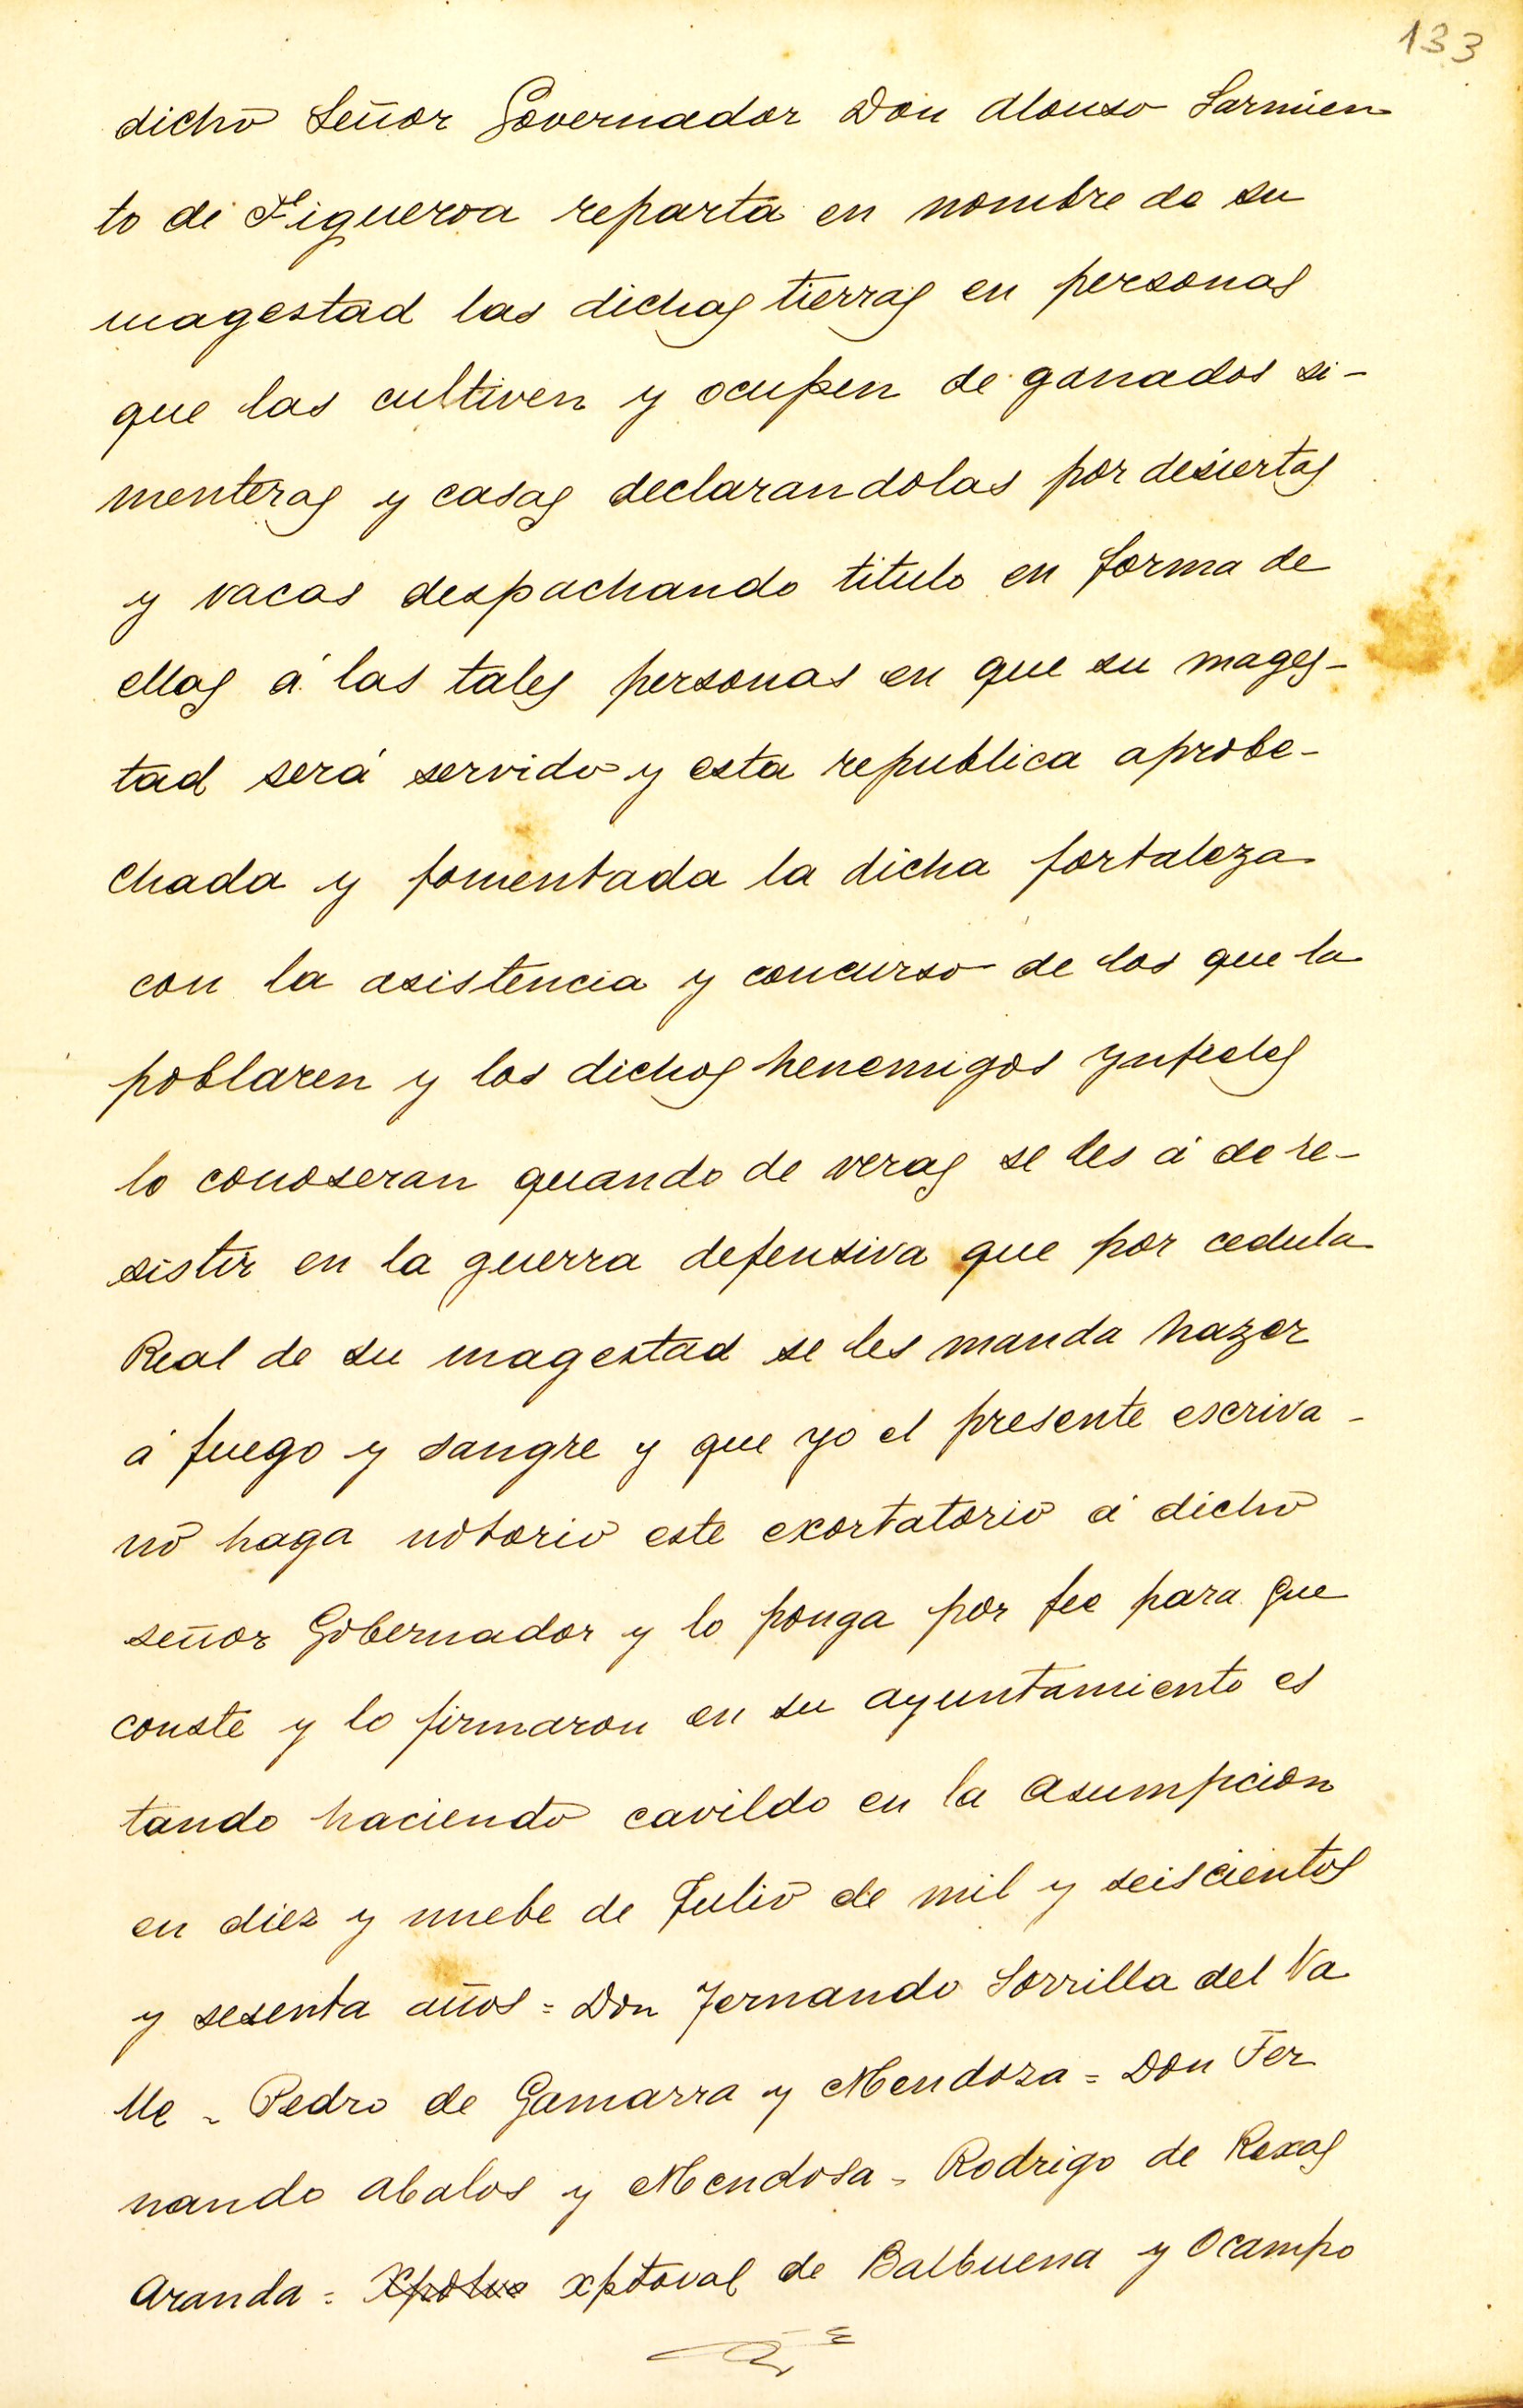 133
dicho Señor Governador Don Alonso Sarmien
to de Figueroa reparta en nombre de su
magestad las dichas tierras en personas
que las cultiven y ocupen de ganados si-
menteras y casas declarandolas por desiertas
y vacas despachando titulo en forma de
ellas á las tales personas en que su mages-
tad será servido y esta republica aprobe-
chada y fomentada la dicha fortaleza
con la asistencia y concurso de los que la
poblaren y los dichos henemigos ynfieles
lo conoseran quando de veras se les á de re-
sistir en la guerra defensiva que por cedula
Real de su magestad se les manda hazer
á fuego y sangre y que yo el presente escriva-
no haga notorio este exortatorio á dicho
señor Gobernador y lo ponga por fee para que
conste y lo firmaron en su ayuntamiento es
tando haciendo cavildo en la Asumpcion
en diez y nuebe de Julio de mil y seiscientos
y sesenta años = Don Fernando Sorrilla del Va
lle = Pedro de Gamarra y Mendoza = Don Fer
nando Abalos y Mendosa = Rodrigo de Roxas
Aranda = xptoval de Balbuena y Ocampo